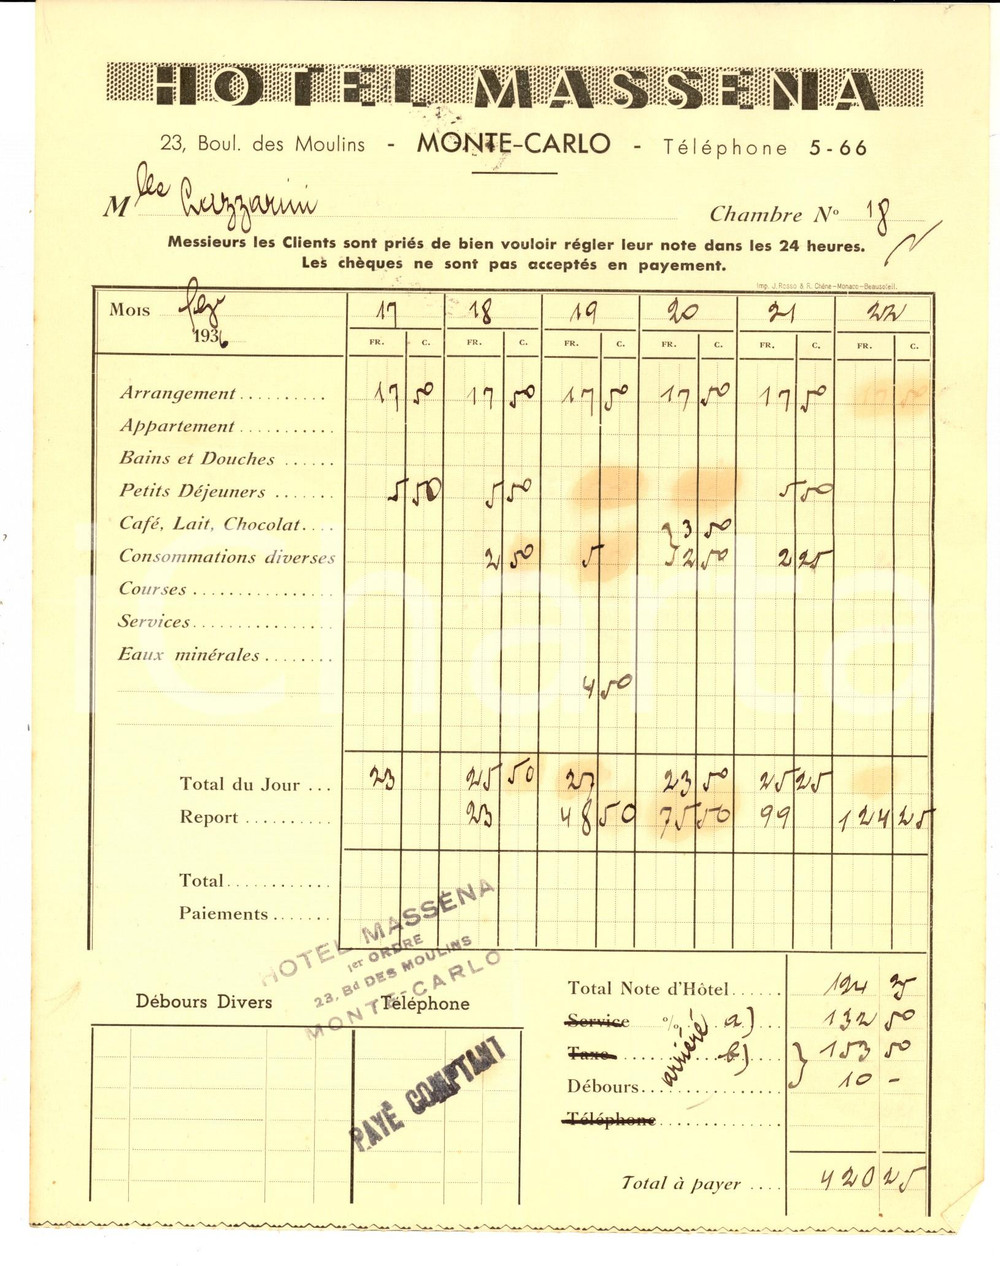 HOTEL MASSENA
23, Boul. des Moulins - MONTE-CARLO - Téléphone 5-66
Mlle Luzzarini Chambre N° 18
Messieurs les Clients sont priés de bien vouloir régler leur note dans les 24 heures.
Les chèques ne sont pas acceptés en payement.
Imp. J. Rosso & R. Chêne-Monaco-Beausoleil.
Mois 17 18 19 20 21 22
1936 FR. C. FR. C. FR. C. FR. C. FR. C. FR. C.
Arrangement.......... 17 50 17 50 17 50 17 50 17 50
Appartement...........
Bains et Douches ......
Petits Déjeuners ....... 5 50 5 50 5 50
Café, Lait, Chocolat.... } 3 50
Consommations diverses 2 50 5 2 50 2 25
Courses ...............
Services...............
Eaux minérales ........
4 50
Total du Jour ... 23 25 50 27 23 50 25 25
Report .......... 23 48 50 75 50 99 124 25
Total............
Paiements.......
HOTEL MASSÉNA
1er ORDRE
23, Bd DES MOULINS
MONTE-CARLO
Débours Divers Téléphone
PAYÉ COMPTANT
Total Note d'Hôtel...... 124 25
Service % a) 132 50
Taxe b) } 153 50
arriéré
Débours 10 -
Téléphone
Total à payer .... 420 25
lencarta